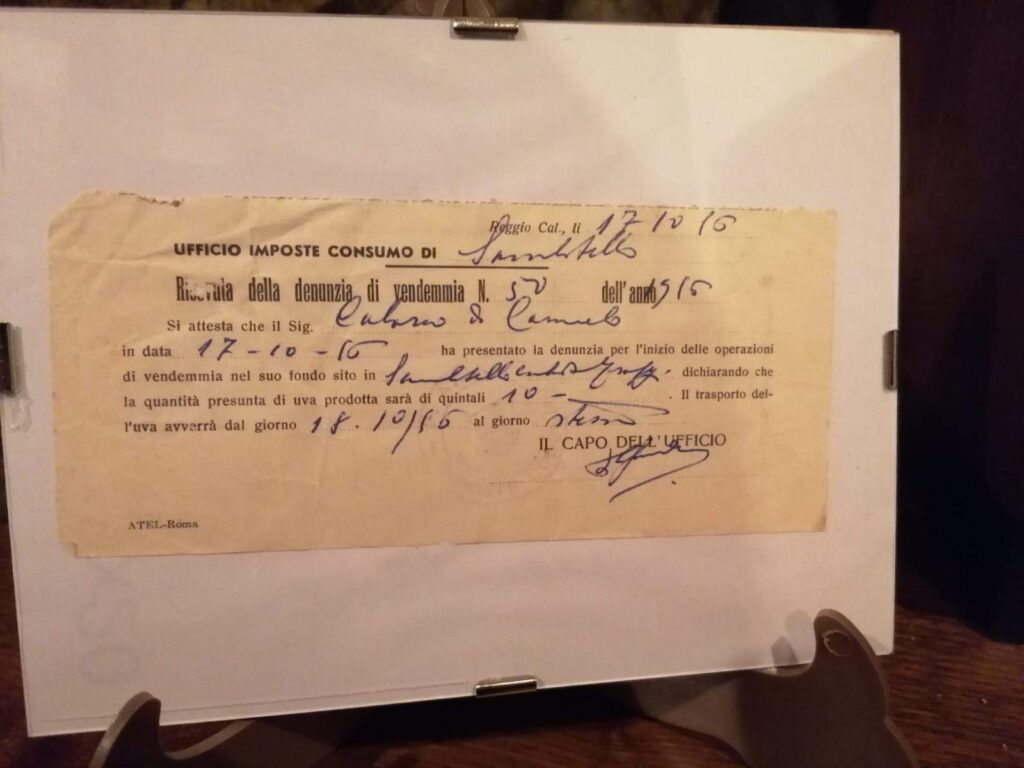 Reggio Cal., lì 17 10 56
UFFICIO IMPOSTE CONSUMO DI Sambatello
Ricevuta della denunzia di vendemmia N. 50 dell'anno 1956
Si attesta che il Sig. Calarco di Carmelo
in data 17-10-56 ha presentato la denunzia per l'inizio delle operazioni
di vendemmia nel suo fondo sito in Sambatello dichiarando che
la quantità presunta di uva prodotta sarà di quintali 10 - . Il trasporto del-
l'uva avverrà dal giorno 18.10/56 al giorno stesso
IL CAPO DELL'UFFICIO
ATEL-Roma